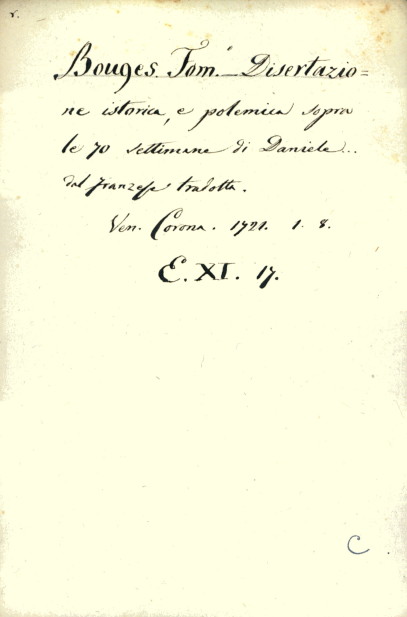 Bouges. Tom.º — Disertazio=
ne istorica, e polemica sopra
le 70 settimane di Daniele...
dal franzese tradotta.
Ven. Corona. 1721. 1. 8.
E. XI. 17.
C